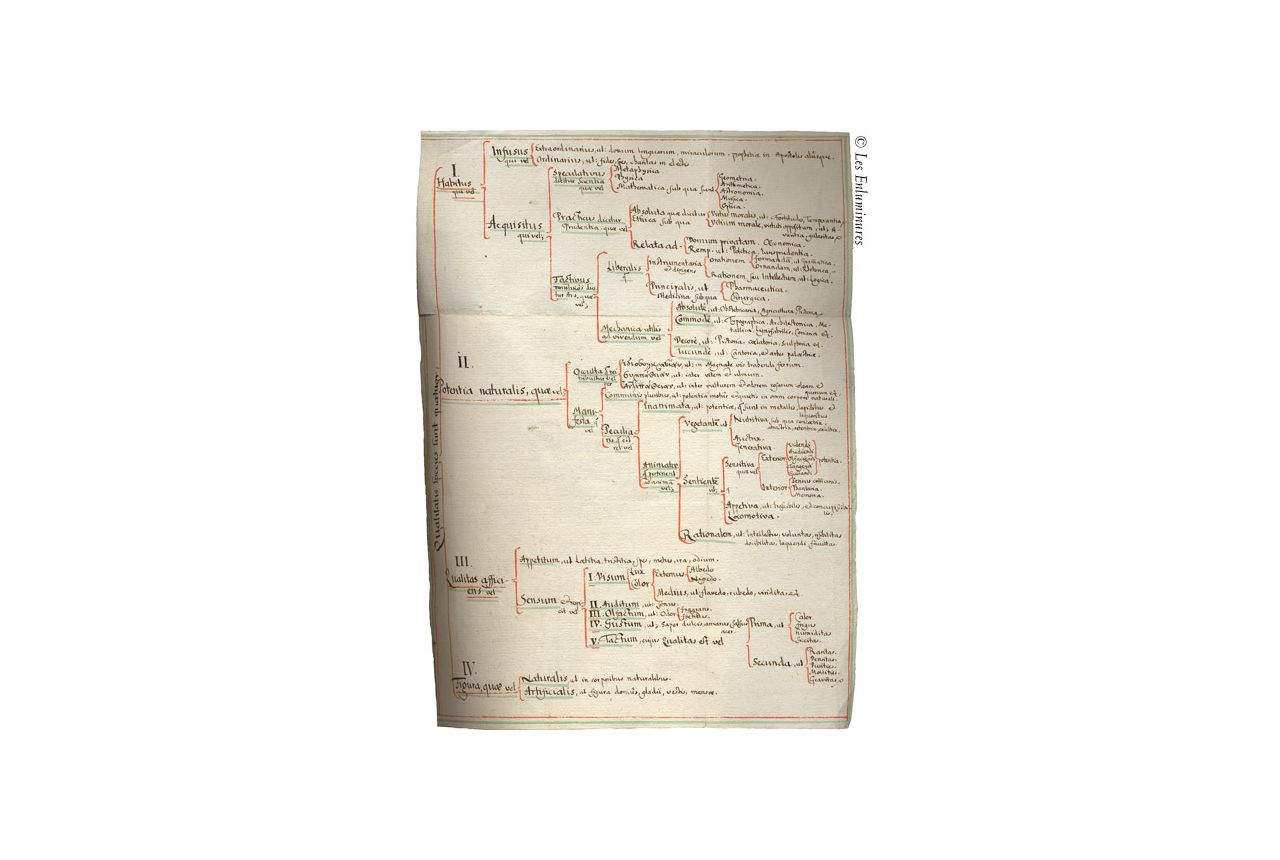 © Les Enluminures
Qualitatis species sunt quatuor
I.
Habitus
qui vel
Infusus
qui vel
Extraordinarius, ut: donum linguarum, miraculorum, prophetiæ in Apostolis aliisque.
Ordinarius, ut: fides, spes, charitas in electis
Acquisitus
qui vel
Speculativus
dicitur scientia
quæ vel
Metaphysica
Physica
Mathematica, sub qua sunt
Geometria.
Arithmetica.
Astronomia.
Musica.
Optica.
Practicus dicitur
Prudentia, quæ vel
Absoluta quæ dicitur
Ethica sub qua
Virtus moralis, ut: Fortitudo, Temperantia
Vitium morale, virtuti oppositum, ut:
Relata ad
Domum privatam. Œconomica.
Remp. ut: Politica, Iurisprudentia.
Factivus
dici
tur Ars, quæ
vel
Liberalis
Instrumentaria
Orationem
Formandam, ut Grammatica.
Ornandam, ut: Rhetorica.
Rationem seu Intellectum, ut: Logica.
Principalis, ut
Medicina sub qua
Pharmaceutica.
Chirurgica.
Mechanica utilis
ad vivendum vel
Absolute, ut: Obstetricaria, Agricultura, Pistoria.
Commode, ut: Typographica, Architectonica, Me-
tallica,
Decore, ut: Pictoria, cœlatoria, sculptoria etc.
Iucunde, ut: Cantoria, et artes palæstricæ.
II.
Potentia naturalis, quæ vel
Occulta
ut: in Magnete vis trahendi ferrum.
ut: inter vitem et ulmum.
ut: inter vulturem et odorem rosarum
Mani-
festa q
vel
Communis pluribus, ut: potentia motus et quietis in omni corpore naturali.
Peculia-
ris
vel
Inanimata, ut: potentiæ, q sunt in metallis, lapidibus et
liquoribus
Animatæ
q pertinent
ad animam
vel
Vegetantem, ut
Nutritiva, sub qua concoctrix,
attractrix, retentrix, expultrix.
Auctrix.
Generativa.
Sentientem
vel
Sensitiva
quæ vel
Exterior
Videndi
Audiendi
Olfaciendi
Tangendi
Gustandi
potentia.
Interior
Sensus communis.
Phantasia.
Memoria.
Appetitiva, ut: Irascibilis, et concupiscibi-
lis.
Locomotiva.
Rationalem, ut: Intellectus, voluntas,
docibilitas, loquendi facultas.
III.
Qualitas affici-
ens vel
Appetitum, ut Lætitia, tristitia, spes, metus, ira, odium.
Sensum
est vel
I. Visum
Lux
Color
Extremus
Albedo
Nigredo.
Medius, ut flavedo, rubedo, viriditas etc.
II. Auditum, ut: sonus.
III. Olfactum, ut: Odor
fragrans.
fœtidus.
IV. Gustum, ut: Sapor dulcis, amarus, salsus
acer.
V. Tactum, cujus Qualitas est vel
Prima, ut
Calor
frigus
humiditas
siccitas.
Secunda, ut
Raritas.
Densitas.
Durities.
Mollities.
Gravitas,
IV.
Figura, quæ vel
Naturalis, ut in corporibus naturalibus.
Artificialis, ut figura domus, gladii, vestis, mensæ.